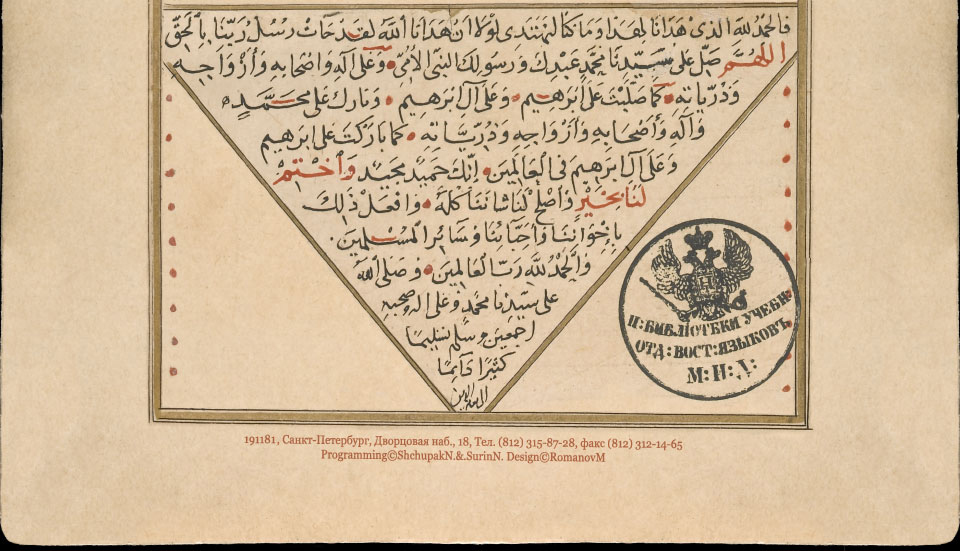 فالحمد لله الذي هدانا لهذا وما كنا لنهتدي لولا ان هدانا الله لقد جات رسل ربنا بالحق
اللهم صل على سيدنا محمد عبدك ورسولك النبي الامي وعلى اله واصحابه وأزواجه
وذرياته كما صليت على ابرهيم وعلى ال ابرهيم وبارك على محمد
وآله وأصحابه وأزواجه وذرياته كما باركت على ابرهيم
وعلى ال ابرهيم في العالمين انك حميد مجيد واختم
لنا بخير وأصلح لنا شاننا كله وافعل ذلك
بإخواننا وأحبائنا وسائر المسلمين
والحمد لله رب العالمين وصلى الله
على سيدنا محمد وعلى اله وصحبه
اجمعين وسلم تسليما
كثيرا دائما
П: БИБЛІОТЕКИ УЧЕБН:
ОТД: ВОСТ: ЯЗЫКОВЪ
М: И: Д:
191181, Санкт-Петербург, Дворцовая наб., 18, Тел. (812) 315-87-28, факс (812) 312-14-65
Programming©ShchupakN.&.SurinN. Design©RomanovM